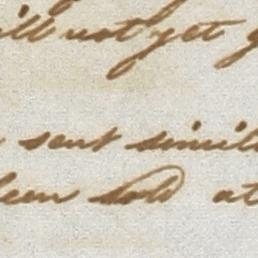 ill not yet g
sent simil
been sold at